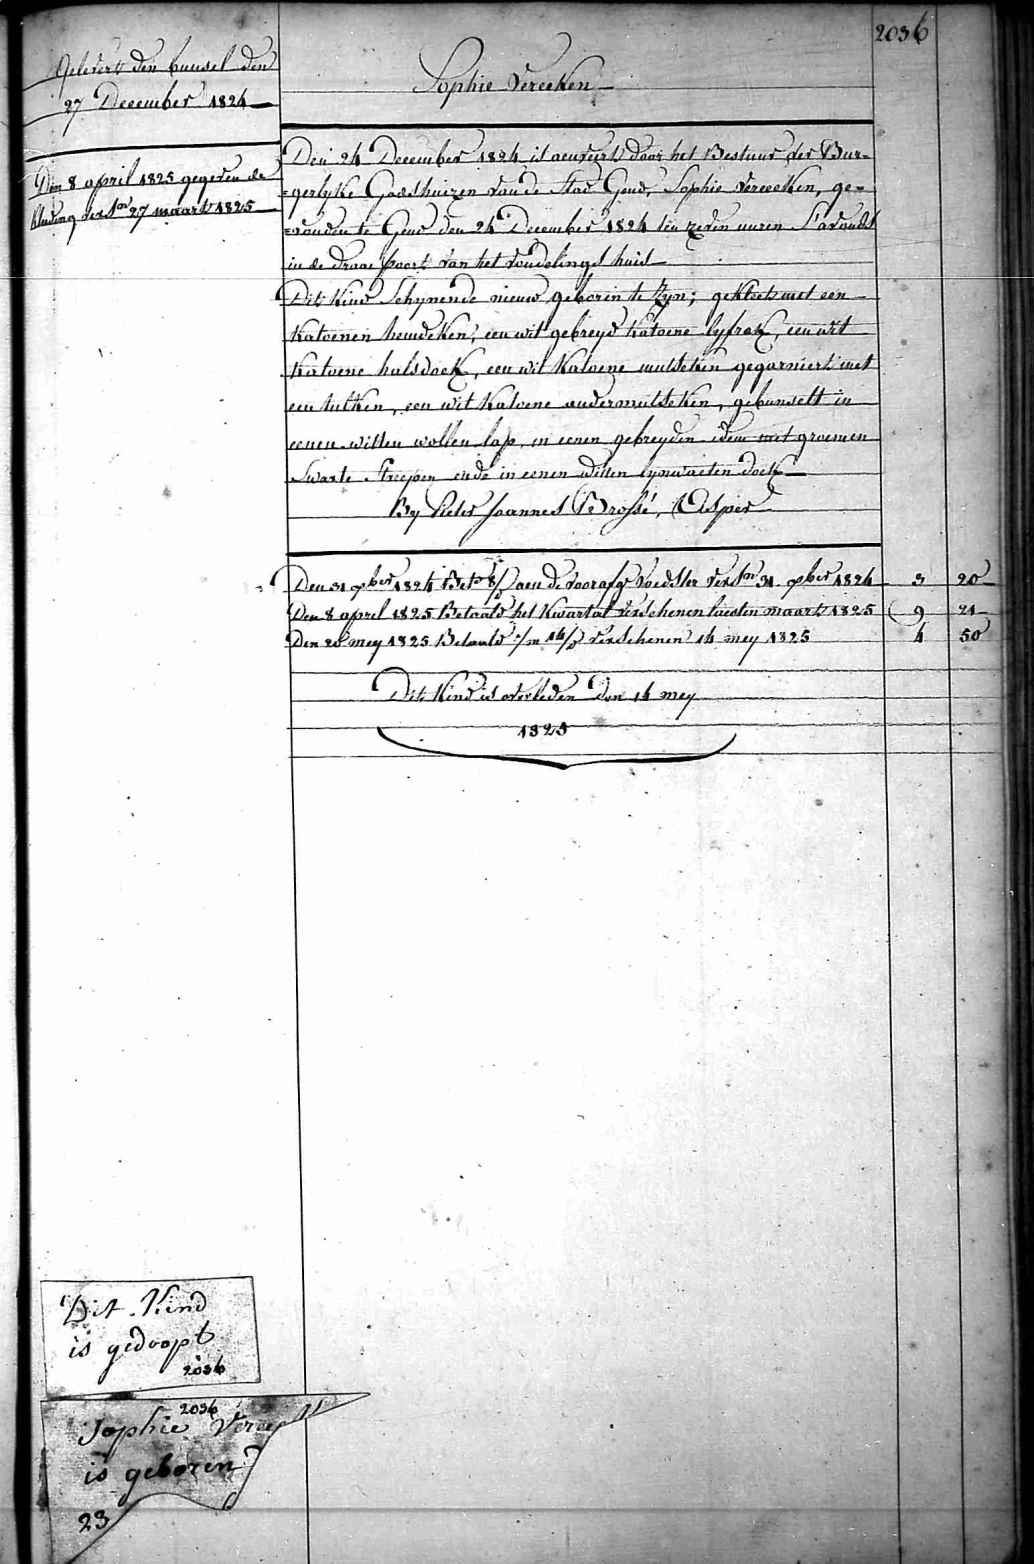 2036
Gelevert den bunsel den
27 December 1824
Den 8 april 1825 gegeven de
kleeding verst.en 27 maart 1825
Sophie Vereeken
Den 24 December 1824 is aenveirt door het Bestuur der Bur=
=gerlyke Godshuizen van de Stad Gend, Sophie Vereeken, ge=
=vonden te Gend den 24 December 1824 ten zeven uuren S'avonds
in de draaipoort van het vondelings huis
Dit Kind Schynende nieuw geboren te Zyn; gekleet met een
Katoenen hemdeken, een wit gebreyd Katoene lyfrok, een wit
Katoene halsdoek, een wit Katoene mutseken gegarniert met
een tulken, een wit Katoene ondermutseken, gebunselt in
eenen witten wollen lap, en eenen gebreyden idem met groenen
Swarte Streepen ende in eenen Witten lynwaeten doek
By Pieter Joannes Brossé, Asper
Den 31 xber 1824 Bet.d aen de voedster verst.en 31 xber 1824 3 20
Den 8 april 1825 Betaald het Kwartal verschenen laesten maart 1825 9 21
Den 20 mey 1825 Betaald verschenen 14 mey 1825 4 50
Dit Kind is overleden den 14 mey
1825
Dit Kind
is gedoopt
2036
2036
Sophie
is geboren
23